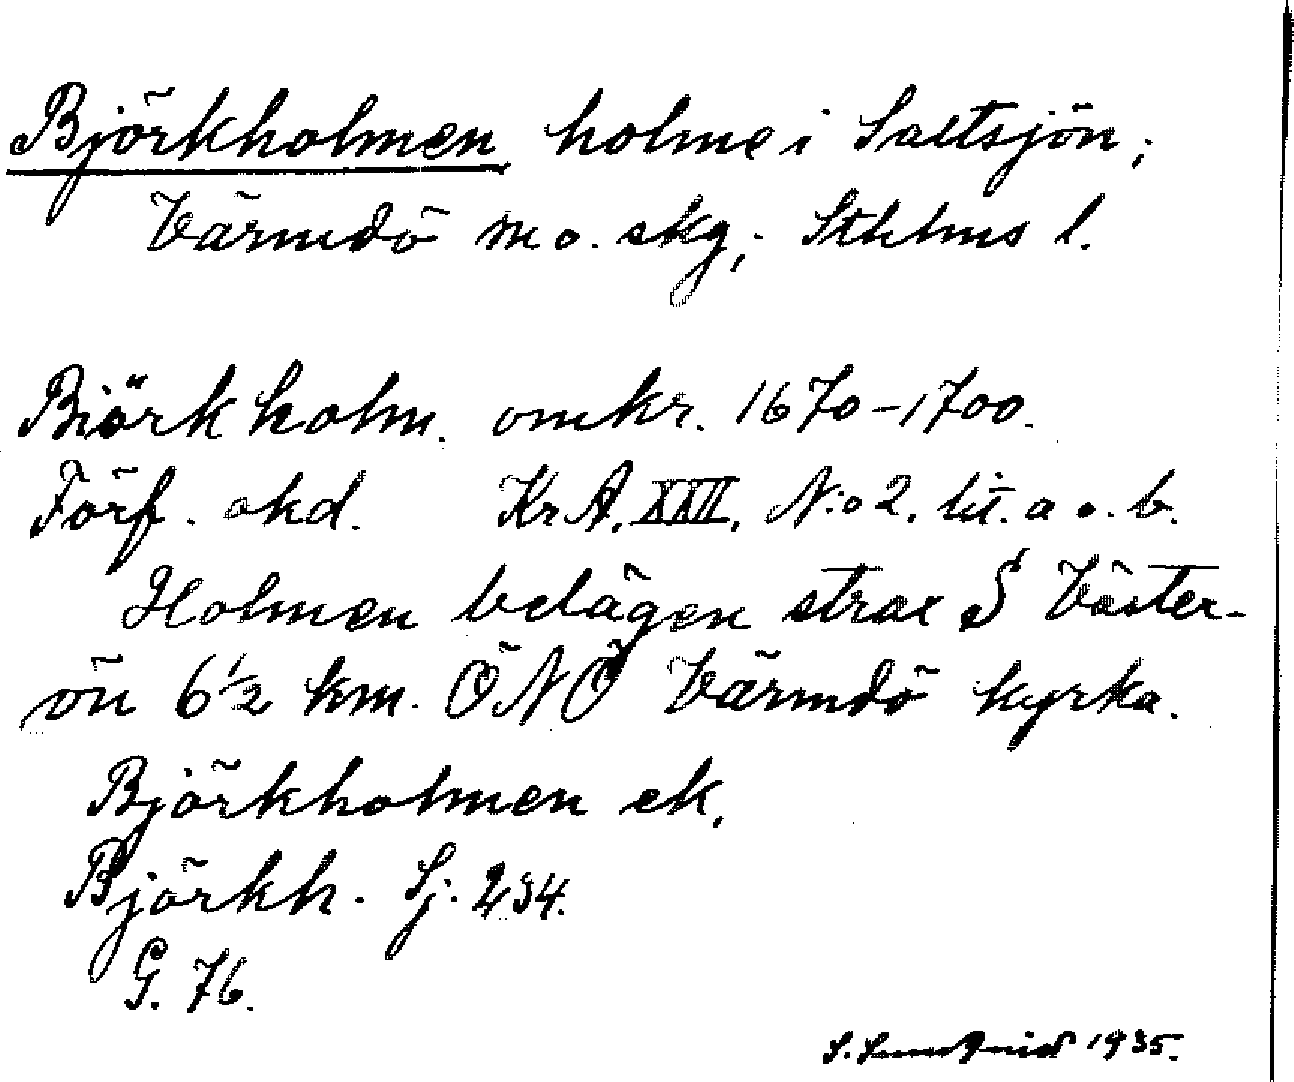 Björkholmen holme i Saltsjön;
Värmdö sn o. skg; Sthlms l.
Biörkholm. omkr. 1670-1700.
Förf. okd. KrA. XXII. N:o 2. lit. a o. b.
Holmen belägen strax S Väster-
ön 6 1/2 km. ÖNÖ Värmdö kyrka.
Björkholmen ek.
Björkh. Sj. 234.
G. 76.
S. 1935.